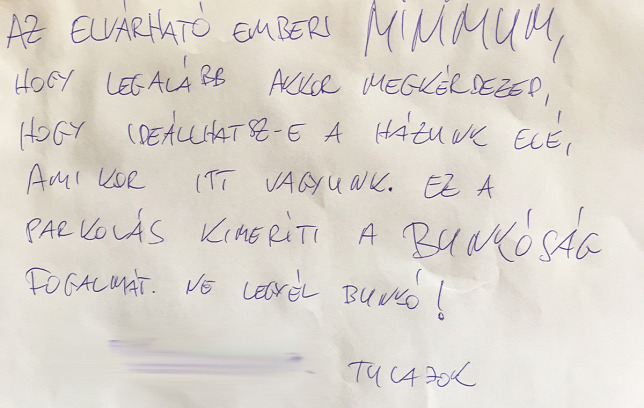 AZ ELVÁRHATÓ EMBERI MINIMUM,
HOGY LEGALÁBB AKKOR MEGKÉRDEZED,
HOGY IDEÁLLHATSZ-E A HÁZUNK ELÉ,
AMIKOR ITT VAGYUNK. EZ A
PARKOLÁS KIMERÍTI A BUNKÓSÁG
FOGALMÁT. NE LEGYÉL BUNKÓ!
TULAJOK